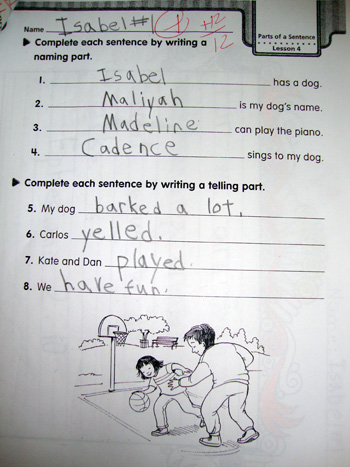 Name Isabel #1 +12
12
Parts of a Sentence
Lesson 4
▶ Complete each sentence by writing a
naming part.
1. Isabel has a dog.
2. Maliyah is my dog's name.
3. Madeline can play the piano.
4. Cadence sings to my dog.
▶ Complete each sentence by writing a telling part.
5. My dog barked a lot.
6. Carlos yelled.
7. Kate and Dan played.
8. We have fun.